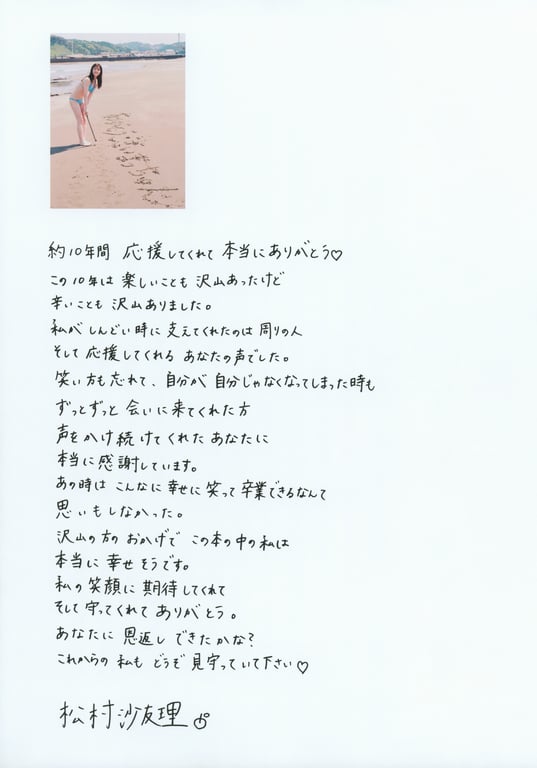 約10年間 応援してくれて 本当にありがとう♡
この10年は 楽しいことも 沢山あったけど
辛いことも 沢山ありました。
私が しんどい時に 支えてくれたのは 周りの人
そして 応援してくれる あなたの声でした。
笑い方も忘れて、自分が 自分じゃなくなってしまった時も
ずっとずっと 会いに来てくれた方
声をかけ続けてくれた あなたに
本当に感謝しています。
あの時は こんなに 幸せに 笑って 卒業できるなんて
思いもしなかった。
沢山の方の おかげで この本の中の私は
本当に 幸せそうです。
私の笑顔に 期待してくれて
そして守ってくれて ありがとう。
あなたに 恩返し できたかな?
これからの 私も どうぞ 見守っていて下さい♡
松村沙友理